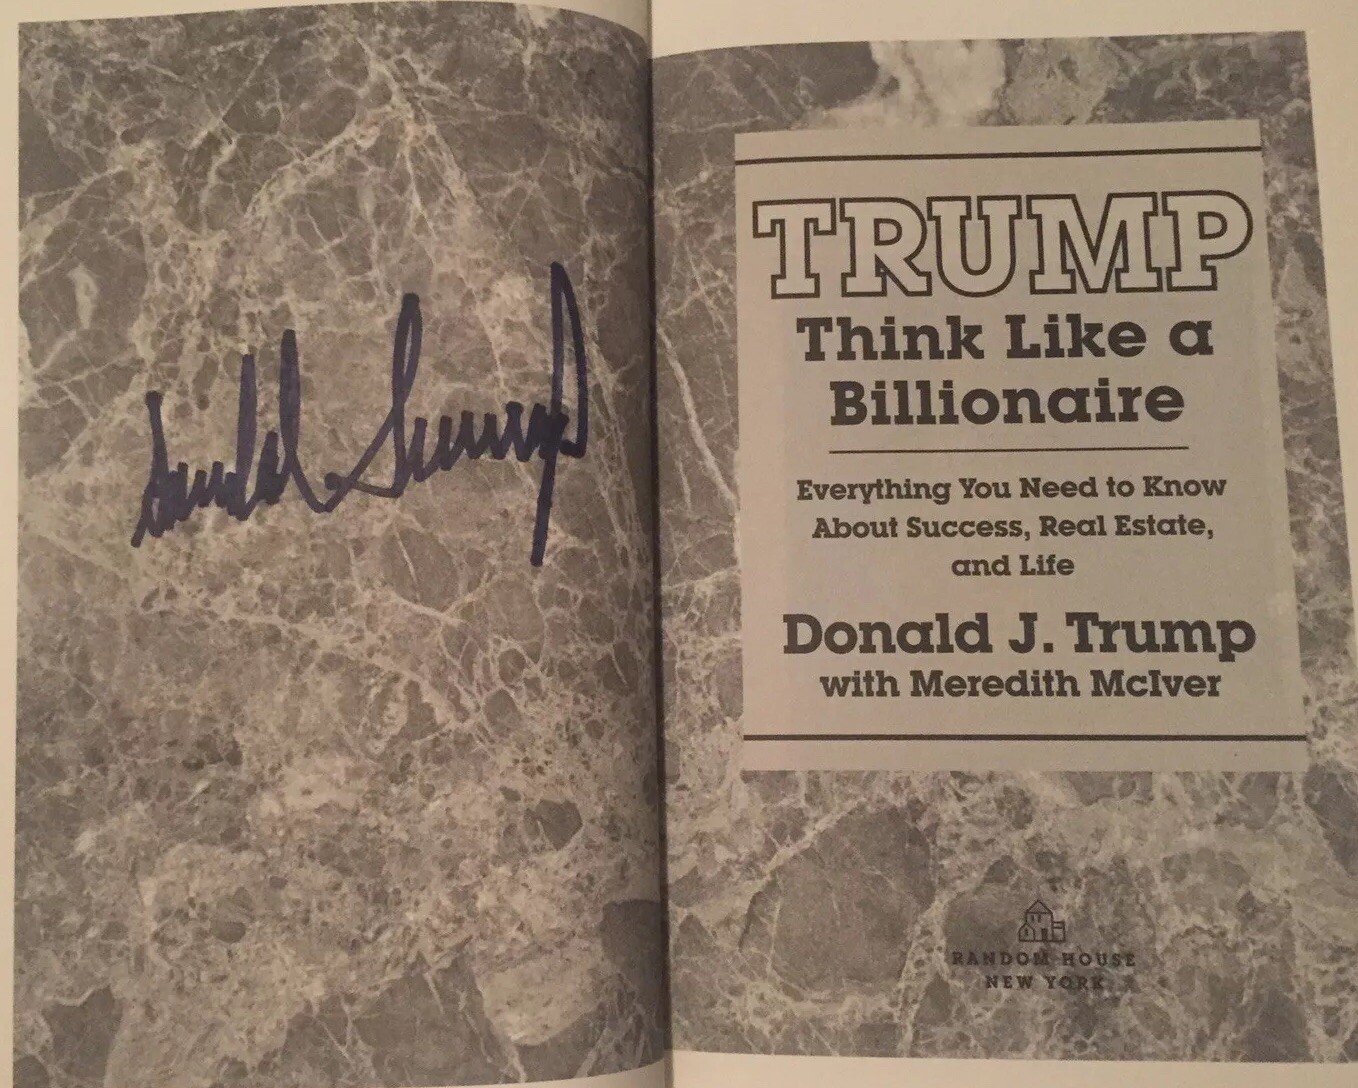 Donald Trump
TRUMP
Think Like a
Billionaire
Everything You Need to Know
About Success, Real Estate,
and Life
Donald J. Trump
with Meredith McIver
RANDOM HOUSE
NEW YORK